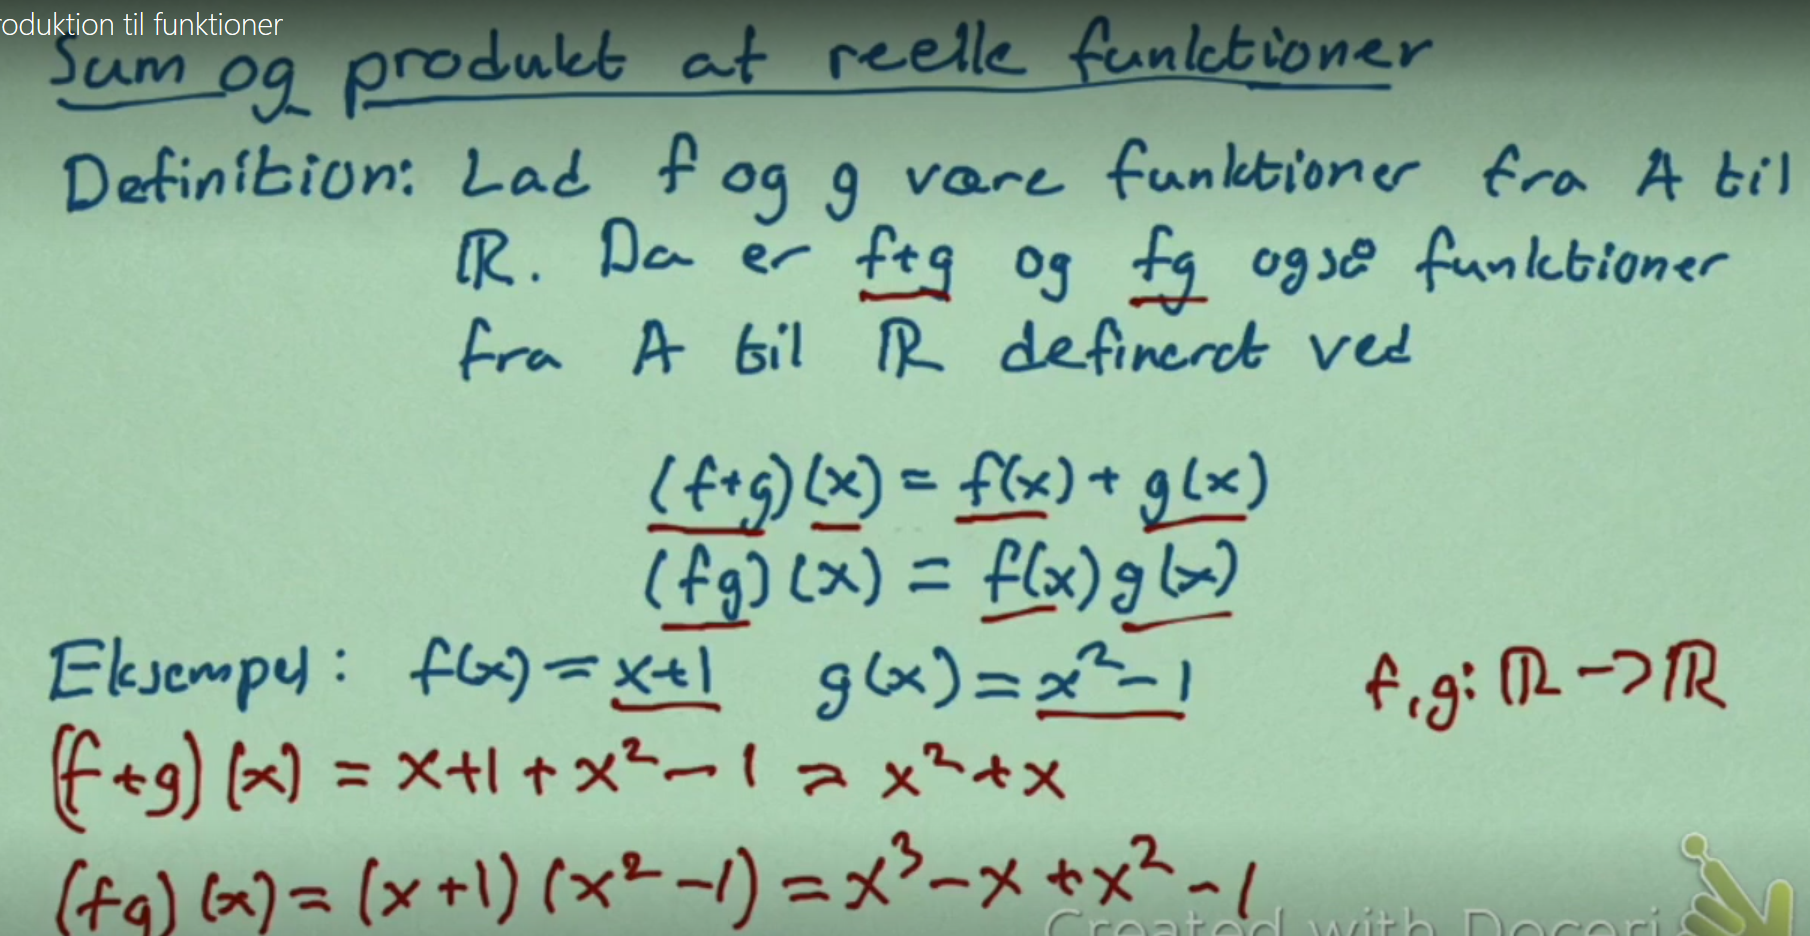 roduktion til funktioner
Sum og produkt af reelle funktioner
Definition: Lad f og g være funktioner fra A til
ℝ. Da er f+g og fg også funktioner
fra A til ℝ defineret ved
(f+g)(x) = f(x) + g(x)
(fg)(x) = f(x)g(x)
Eksempel: f(x) = x+1 g(x) = x²-1 f,g: ℝ -> ℝ
(f+g)(x) = x+1 + x²-1 = x²+x
(fg)(x) = (x+1)(x²-1) = x³-x+x²-1
Created with Doceri